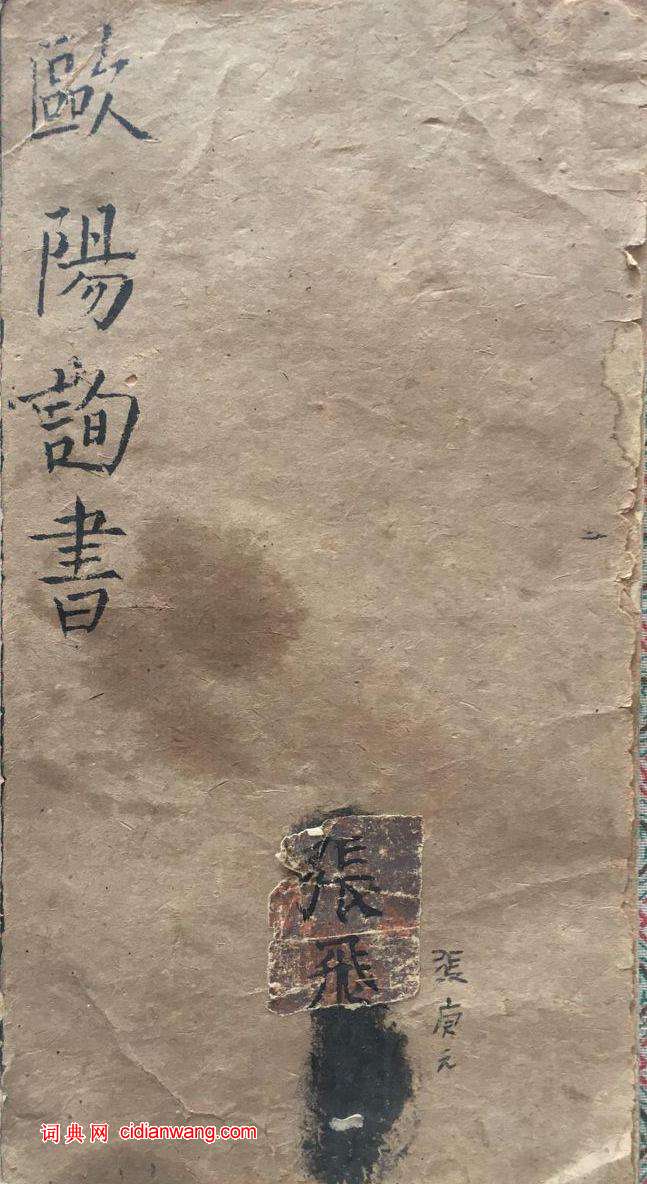 歐陽詢書
張飛
張庚元
词典网 cidianwang.com